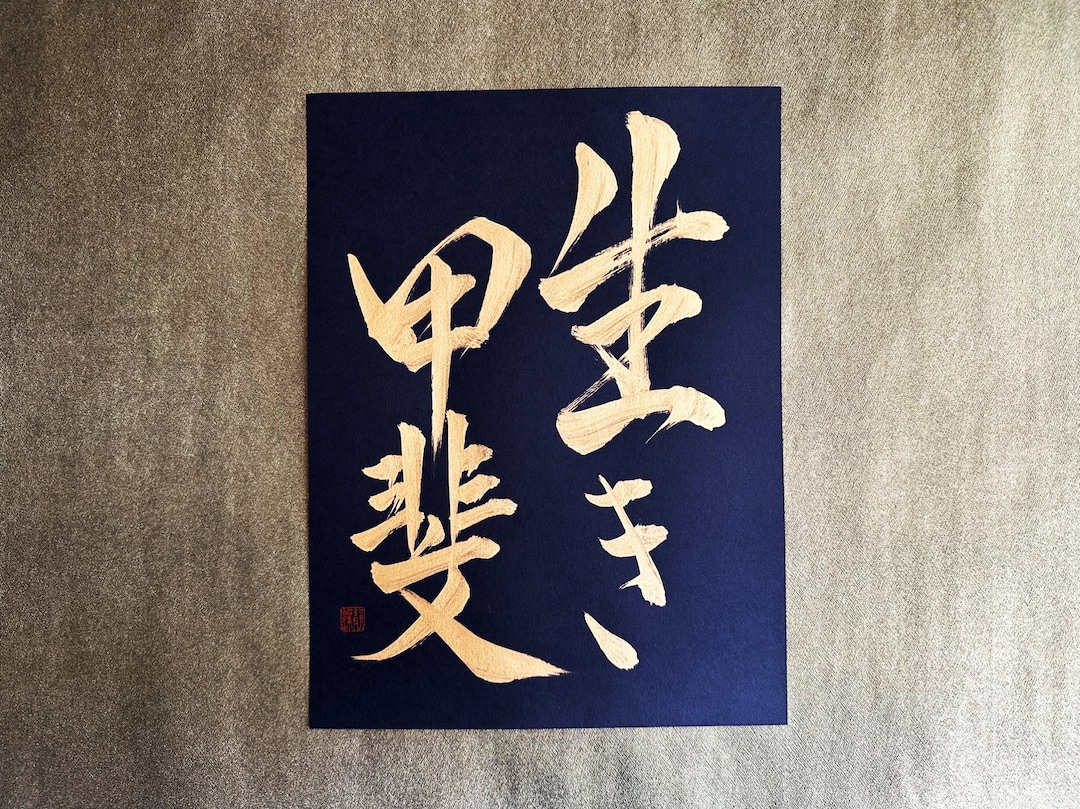 生き
甲斐